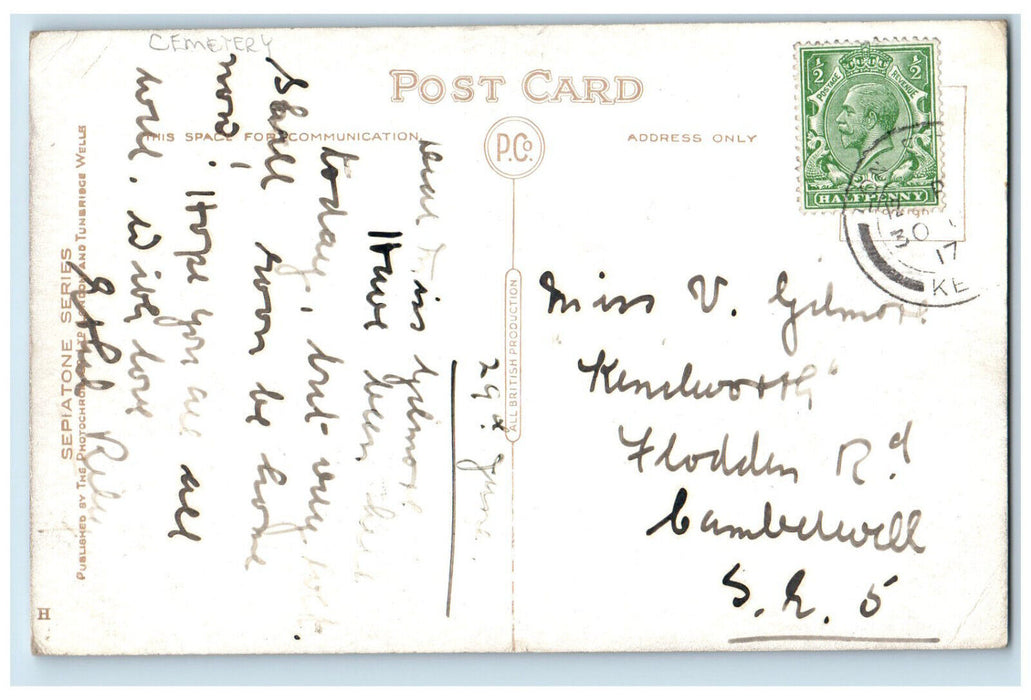 CEMETERY
POST CARD
THIS SPACE FOR COMMUNICATION.
ADDRESS ONLY
P.Co.
ALL BRITISH PRODUCTION
SEPIATONE SERIES
PUBLISHED BY THE PHOTOCHROM LONDON AND TUNBRIDGE WELLS
H
½ ½
POSTAGE REVENUE
HALFPENNY
30
17
KE
29th June.
Dear Miss Gilmore
Have been here
today, but very wet.
Shall soon be home
now! Hope you are all
well. With love
Ethel Riley
Miss V. Gilmore
"Kenilworth"
Flodden Rd
Camberwell
S.E. 5